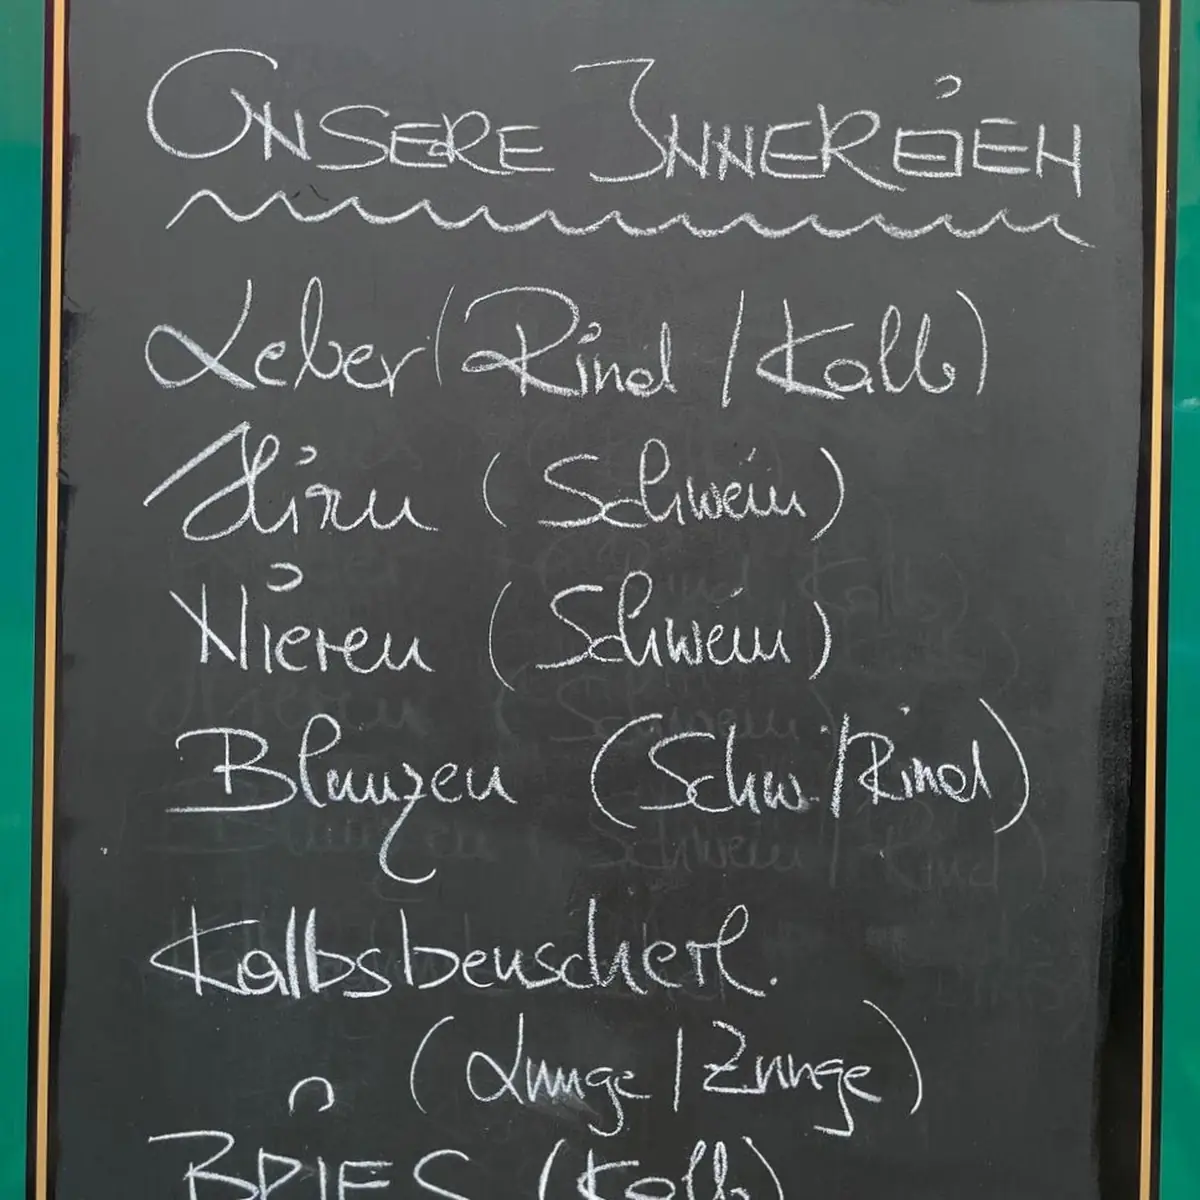 UNSERE INNEREIEN
Leber (Rind / Kalb)
Hirn (Schwein)
Nieren (Schwein)
Blunzen (Schw. / Rind)
Kalbsbeuscherl.
(Lunge / Zunge)
BRIES (Kalb)